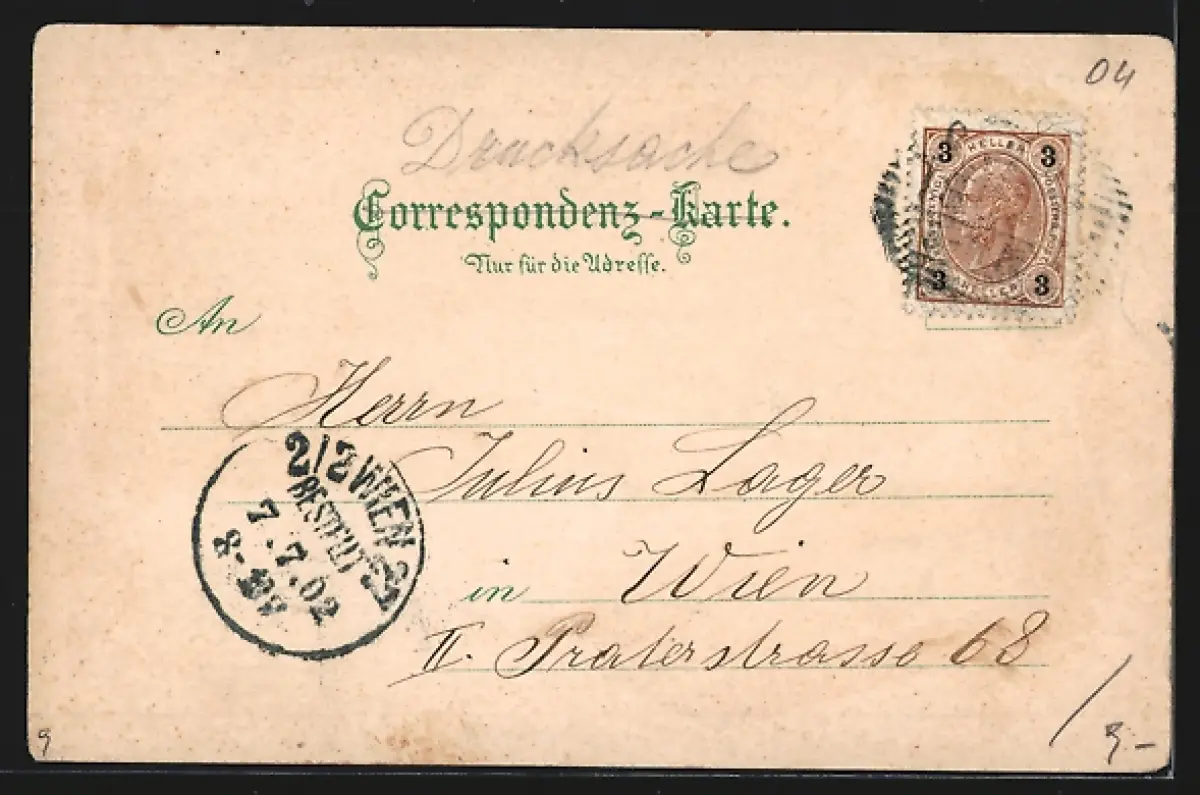 04
Drucksache
Correspondenz-Karte.
Nur für die Adresse.
3 HELLER 3
3 HELLER 3
An
Herrn
Julius Lager
in Wien
II. Praterstrasse 68
2/2 WIEN 2/2
BESTELLT
7.7.02
9
3-